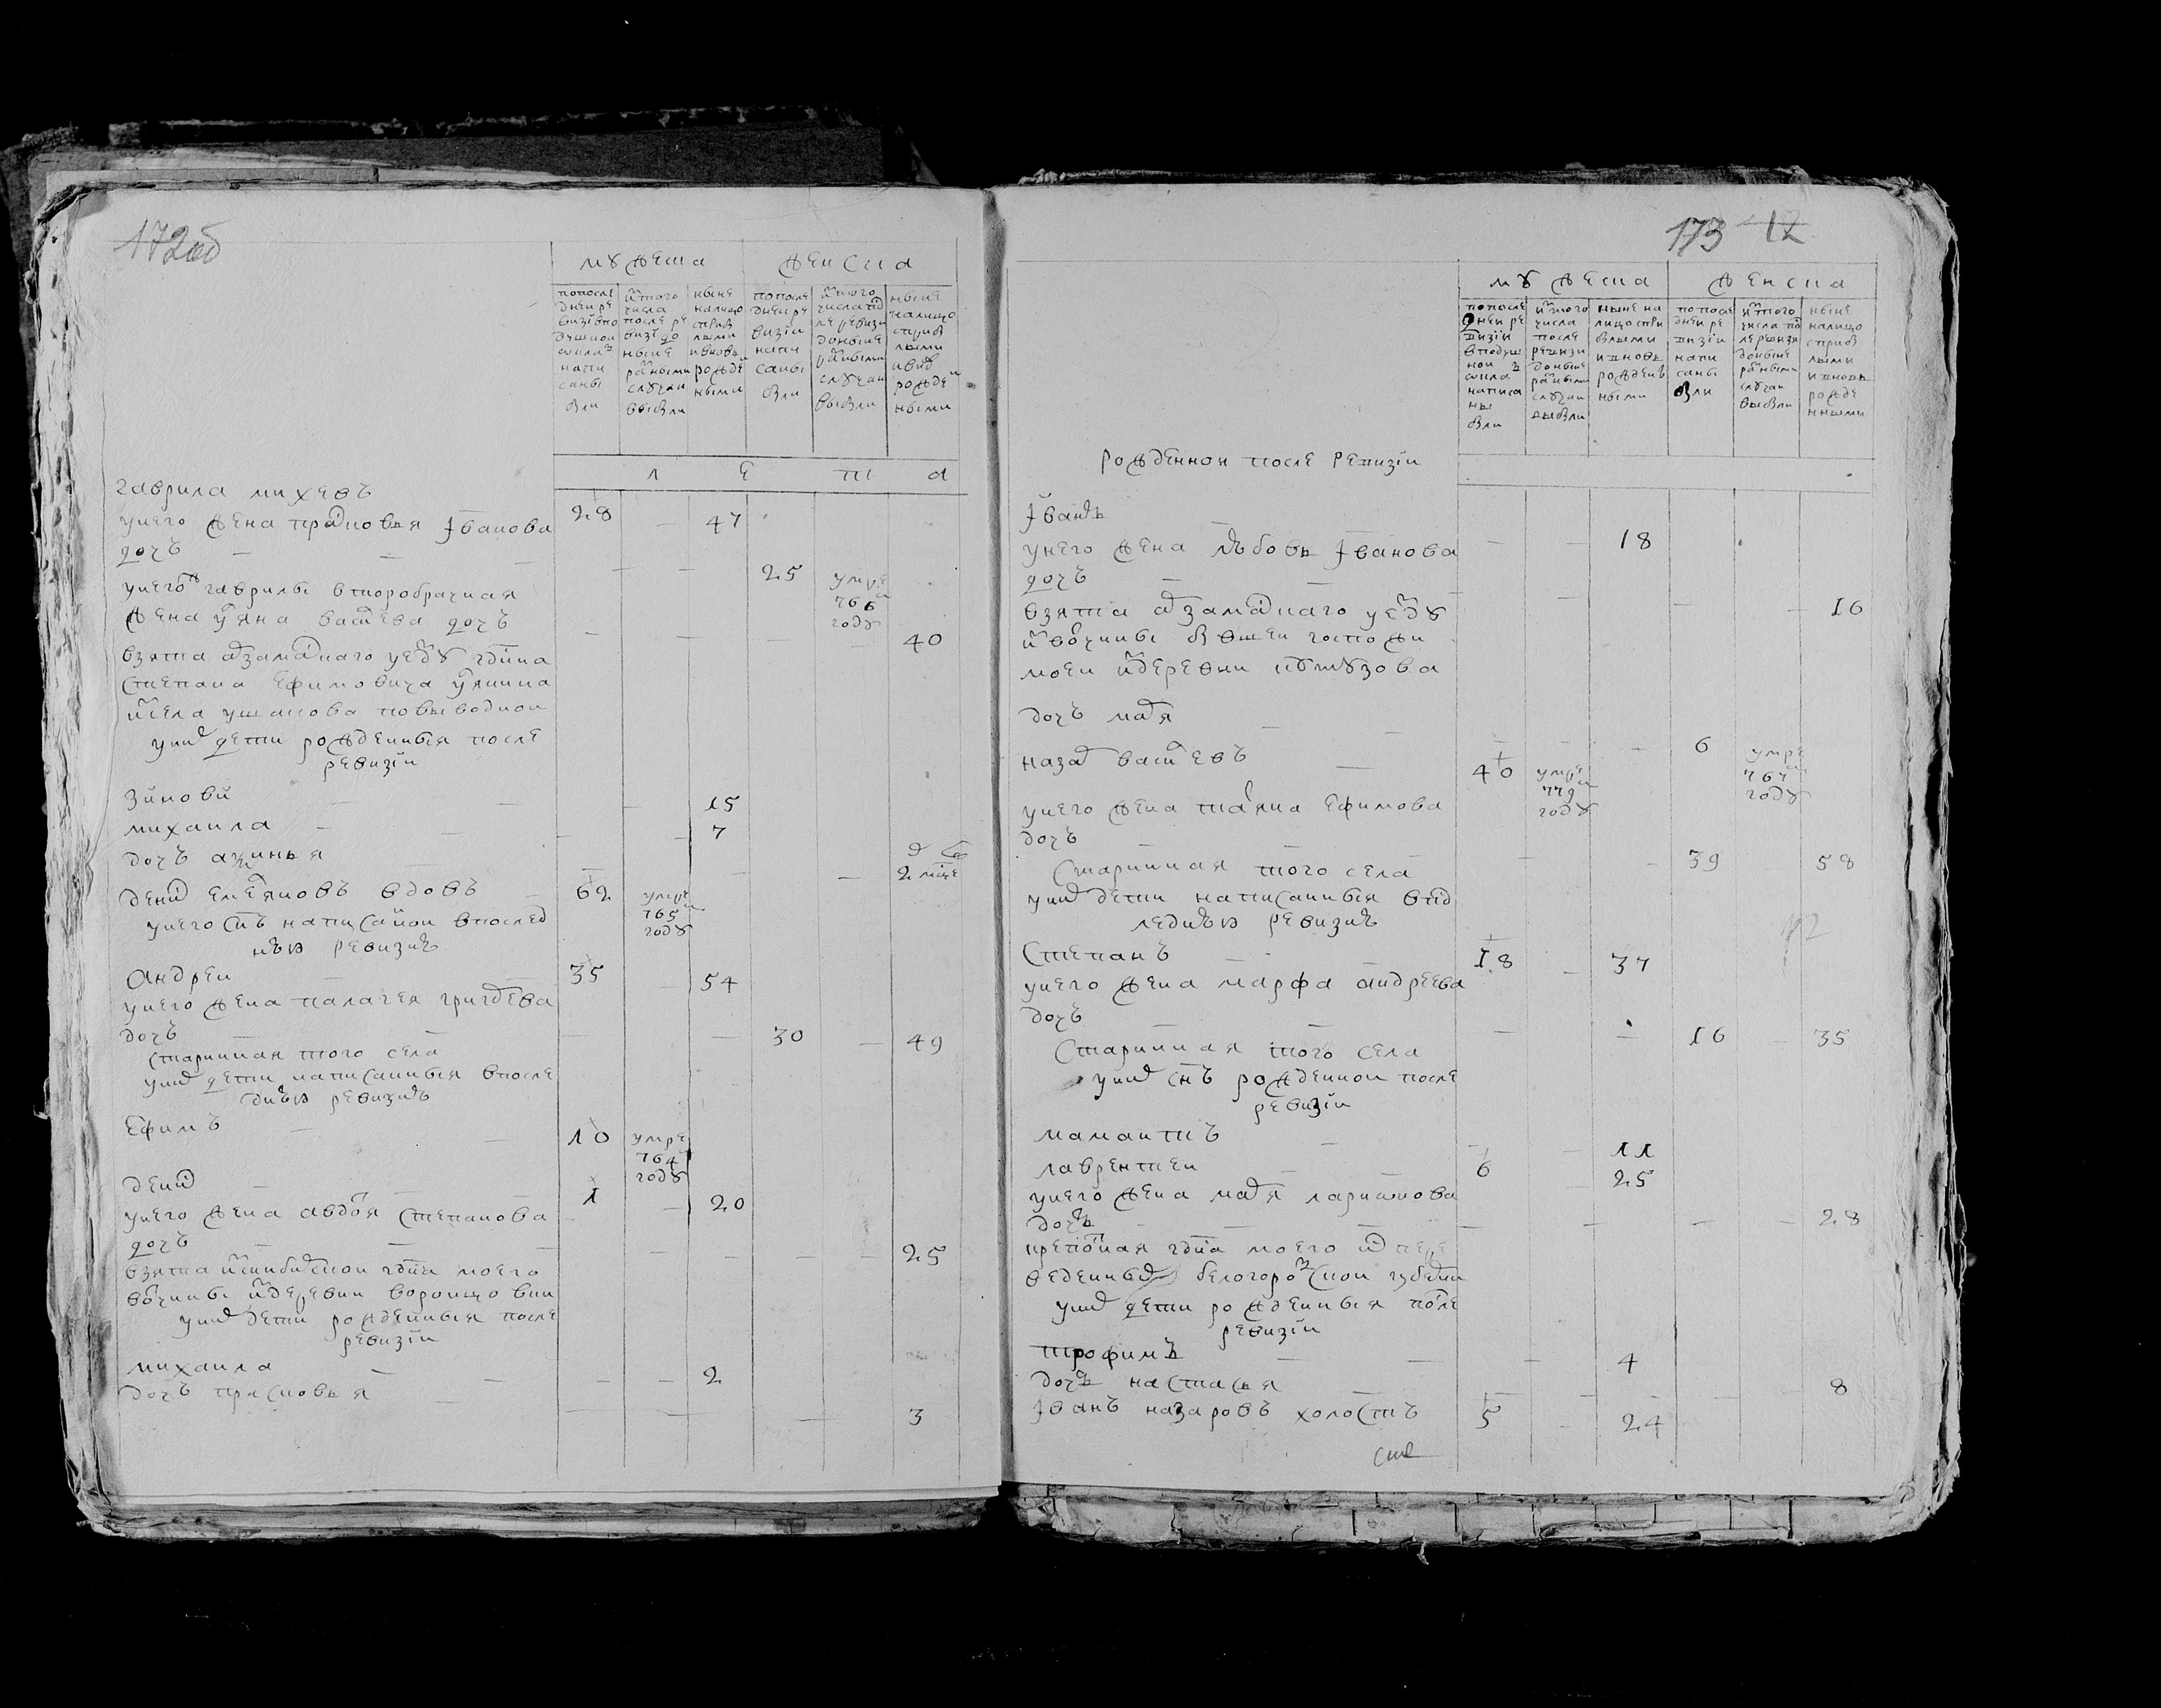 172об
мужеска женска
попослѣ дней ре визїи по душном окладѣ напи саны были
ис того числа после ре визїи до ныне разными случаи выбыли
ныне налицо с прибылыми и вновь рожденными
попосле дней ре визїи напи саны были
ис того числа по сле ревизи до ныне разными случаи выбыли
ныне налицо с прибылыми и вновь рожденными
л е т а
гаврила михеевъ 28 — 47
у него жена прасковья Ївановa
дочь — — — 25 умре 766 году
у него гаврилы второбрачная
жена ульяна васильева дочь 40
взята арзамаского уезду гдина
степана ефимовича
ис села ушакова по выводной
у них дети рожденныя после
ревизїи
зиновий — — 15
михайла — — 7
дочь аксинья 2 мце
денис емельяновъ вдовъ 62 умре 765 году
у него снъ написаной в послед
нѣй ревизиѣ
андрей 35 — 54
у него жена палагея григорьева
дочь — — 30 — 49
старинная того села
у них дети написанныя в после
днѣй ревизиѣ
ефимъ — 10 умре 764 году
денис — 1 — 20
у него жена авдотья степанова
дочь — — — 25
взята и синбирской гдина моего
вотчины из деревни
у них дети рожденныя после
ревизїи
михайла — — 2
дочь прасковья — — 3
173 12
мужеска женска
попосле дней ре визїи в подуш ной оклад написа ны были
ис того числа после ревизи доныне разными случаи выбыли
ныне на лицо с при былыми и вновь рожденными
попосле дней ре визїи напи саны были
ис того числа по сле ревизи доныне разными случаи выбыли
ныне налицо с прибылыми и вновь рожденными
рожденной после ревизїи
Їванъ — — 18
у него жена любовь Їванова
дочь — — 16
взята арзамаского уезду
из вотчины
моей из деревни
дочь марья — — 6 умре 767 году
назар васильевъ — 40 умре 779 году
у него жена татьяна ефимова
дочь — — 39 58
старинная того села
у них дети написанныя в пос
ледней ревизиѣ
степанъ — 18 — 37
у него жена марфа андреева
дочь — — 16 — 35
старинная того села
у них снъ рожденной после
ревизїи
мамантъ — — 11
лаврентей — 6 — 25
у него жена марья ларионова
дочь — — — 28
крепостная гдина моего ис пере
веденных белогородской губерни
у них дети рожденныя после
ревизїи
трофимъ — — 4
дочь настасья — — 8
Їванъ назаровъ холостъ 5 — 24